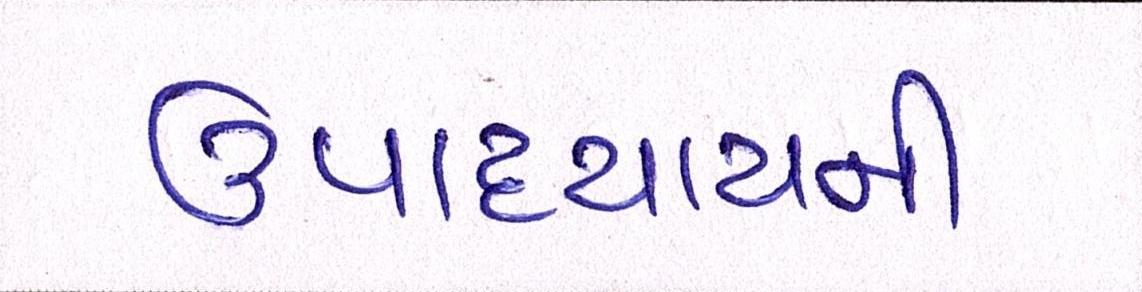 ઉપાદયાયની